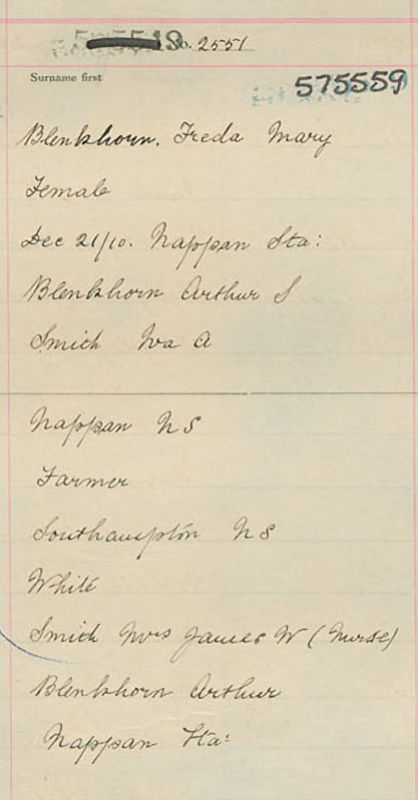 No. 2551
Surname first
575559
Blenkhorn, Freda Mary
Female
Dec 21/10. Nappan Sta:
Blenkhorn Arthur S
Smith Iva A
Nappan NS
Farmer
Southampton NS
White
Smith Mrs James W (Nurse)
Blenkhorn Arthur
Nappan Sta: